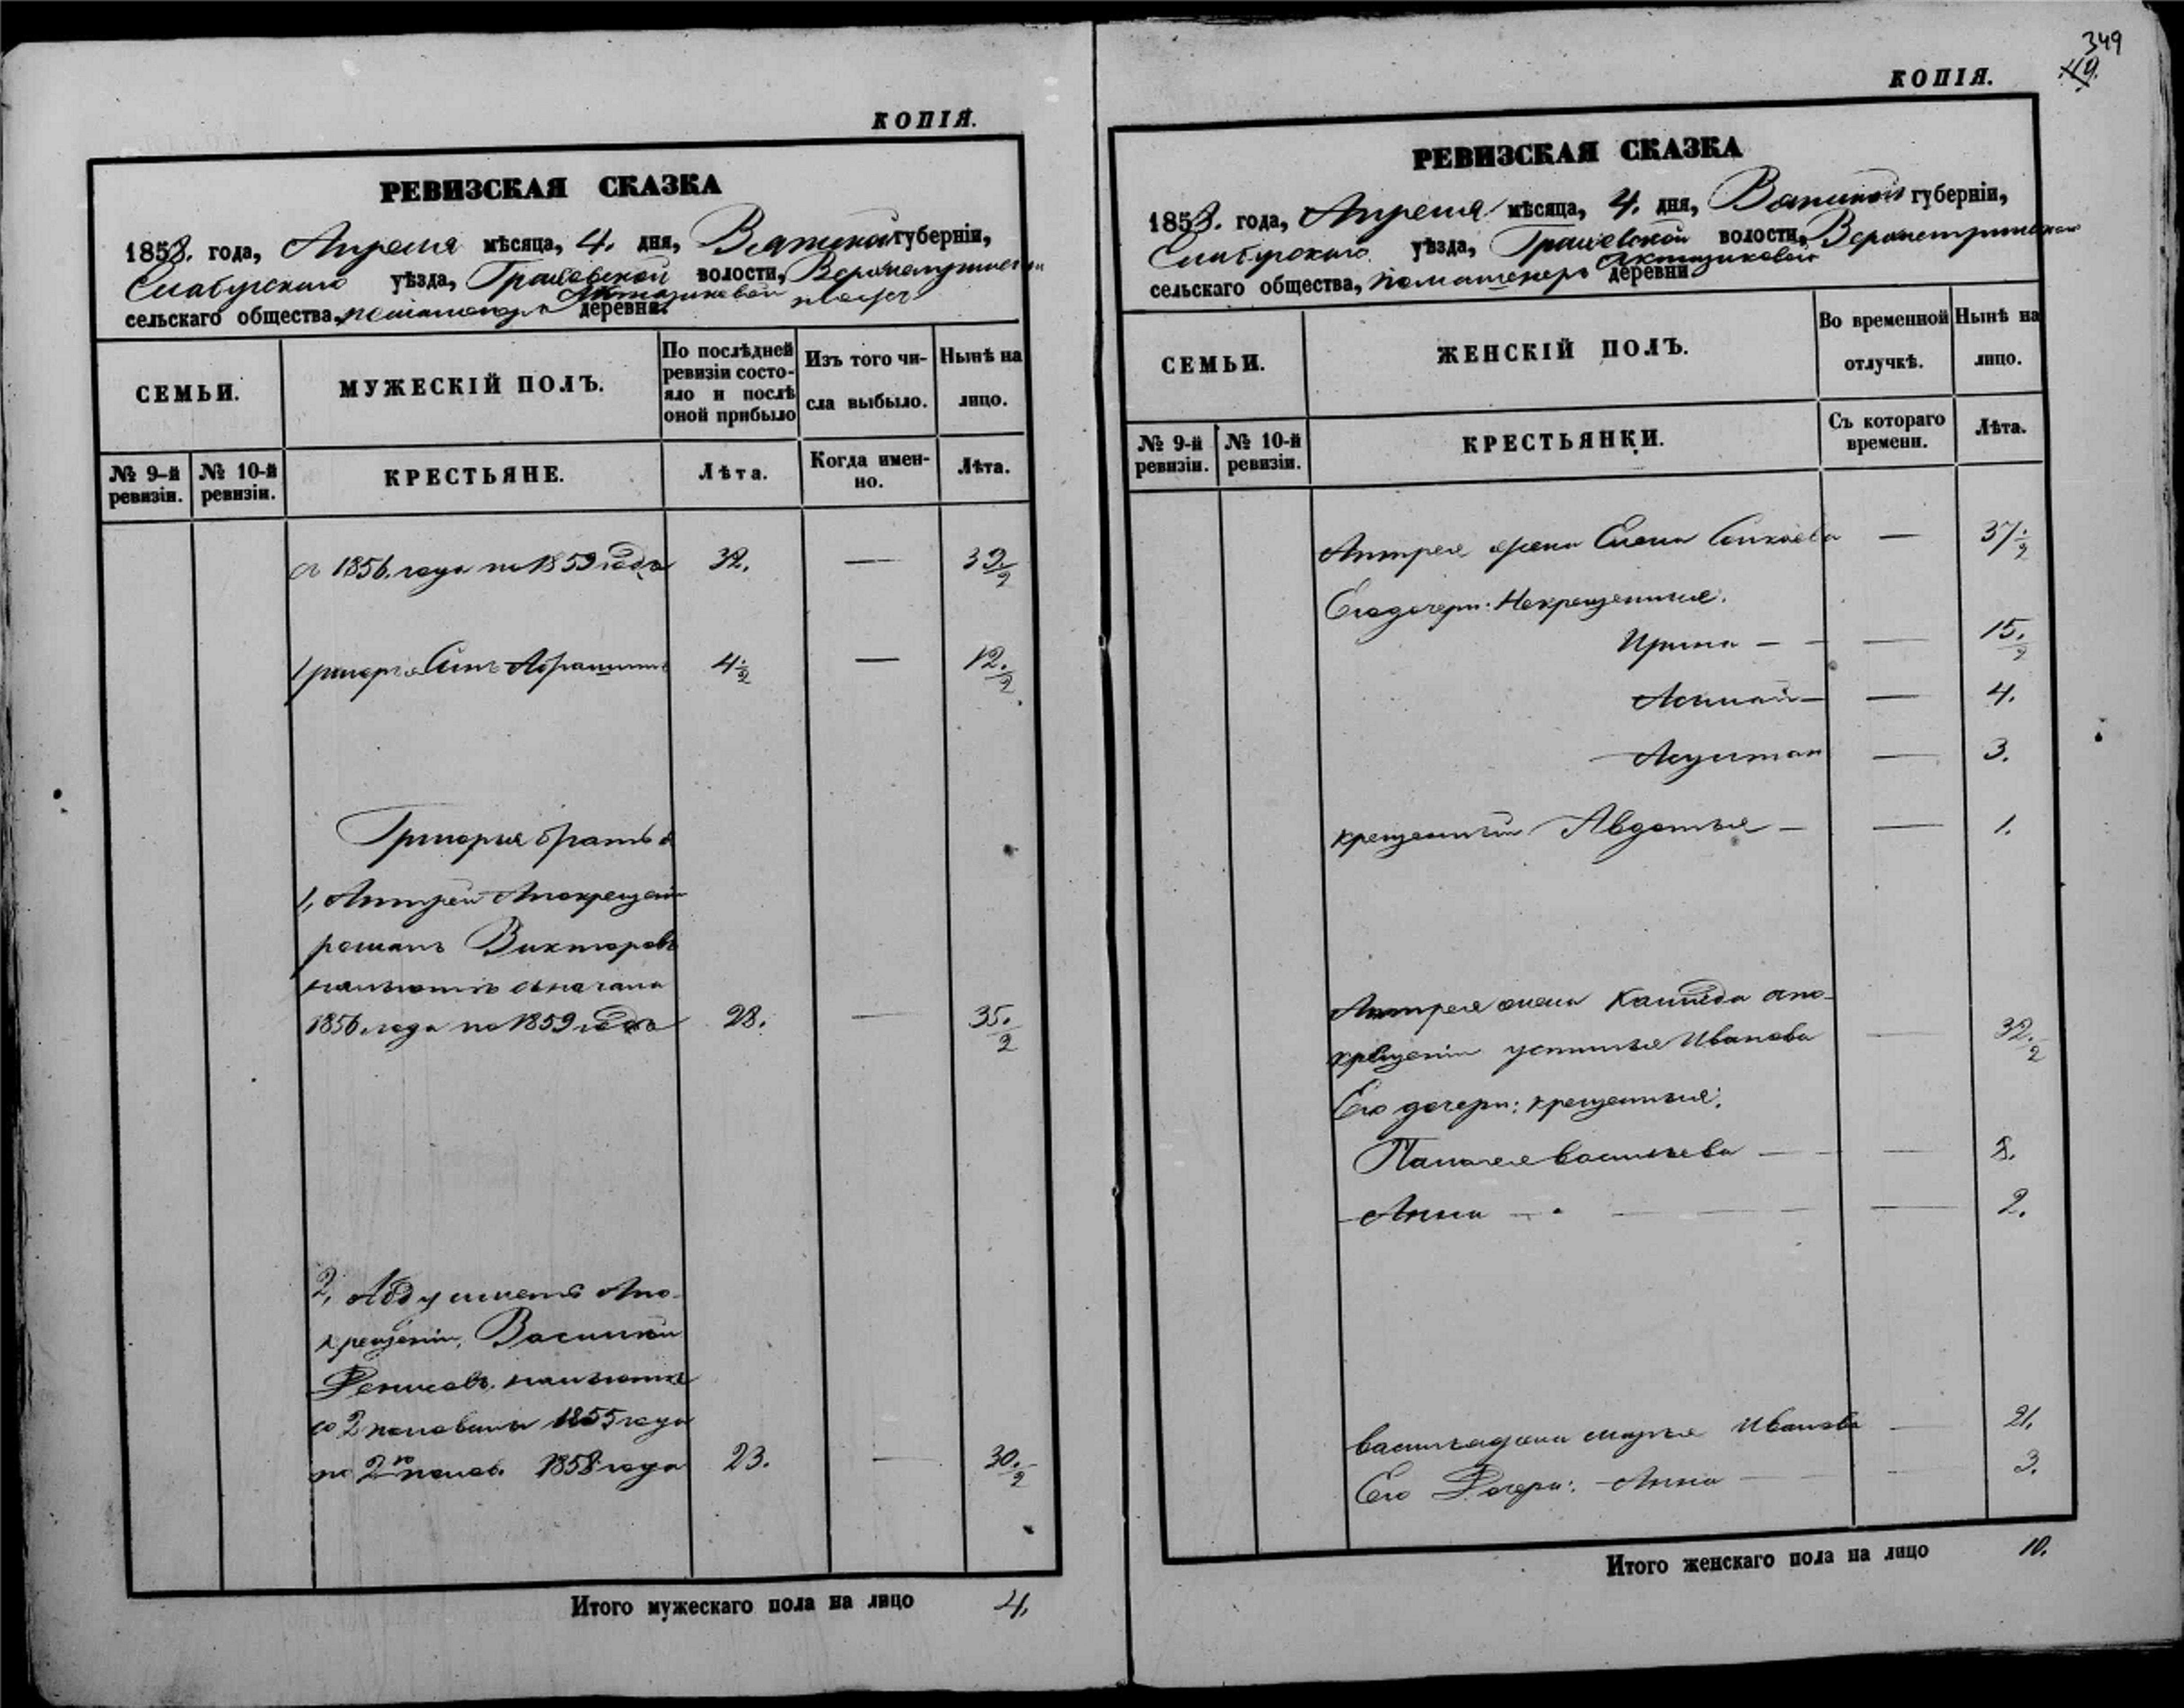 КОПІЯ.
РЕВИЗСКАЯ СКАЗКА
1858. года, Апреля мѣсяца, 4. дня, Вятской губерніи,
Елабужскаго уѣзда, Граховской волости,
сельскаго общества, деревни
СЕМЬИ.
МУЖЕСКІЙ ПОЛЪ.
По послѣдней ревизіи состояло и послѣ оной прибыло
Изъ того числа выбыло.
Нынѣ на лицо.
№ 9-й ревизіи.
№ 10-й ревизіи.
КРЕСТЬЯНЕ.
Лѣта.
Когда именно.
Лѣта.
съ 1856. года по 1859 года 32. — 39/2
Григорья Сынъ 4 1/2 — 12./2
Григорья братья
1, Антрей Апокрещеніи
романъ Викторовъ
сначала
1856. года по 1859 года 28. — 35./2
2, Апо-
крещеніи, Василий
Денисовъ.
со 2 половины 1855 года
по 2ю полов. 1858 года 23. — 30./2
Итого мужескаго пола на лицо 4.
349
49.
КОПІЯ.
РЕВИЗСКАЯ СКАЗКА
1858. года, Апреля мѣсяца, 4. дня, Вятской губерніи,
Елабужскаго уѣзда, Граховской волости,
сельскаго общества, деревни
СЕМЬИ.
ЖЕНСКІЙ ПОЛЪ.
Во временной отлучкѣ.
Нынѣ на лицо.
№ 9-й ревизіи.
№ 10-й ревизіи.
КРЕСТЬЯНКИ.
Съ котораго времени.
Лѣта.
Антрея жена Елена — 37./2
Его дочери: Некрещенныя:
Ирина — — 15./2
— 4.
— 3.
крещенный Авдотья — — 1.
Антрея жена апо-
крещеніи устинья Иванова — 32./2
Его дочери: крещенныя:
Васильева — — 8.
Анна — — 2.
Васильяжена марья Иванова — 21.
Его Дочери: Анна — 3.
Итого женскаго пола на лицо 10.